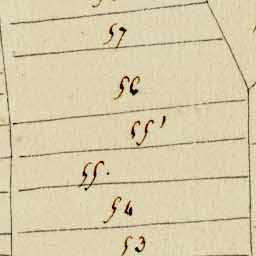 57
56
55'
55.
54
53